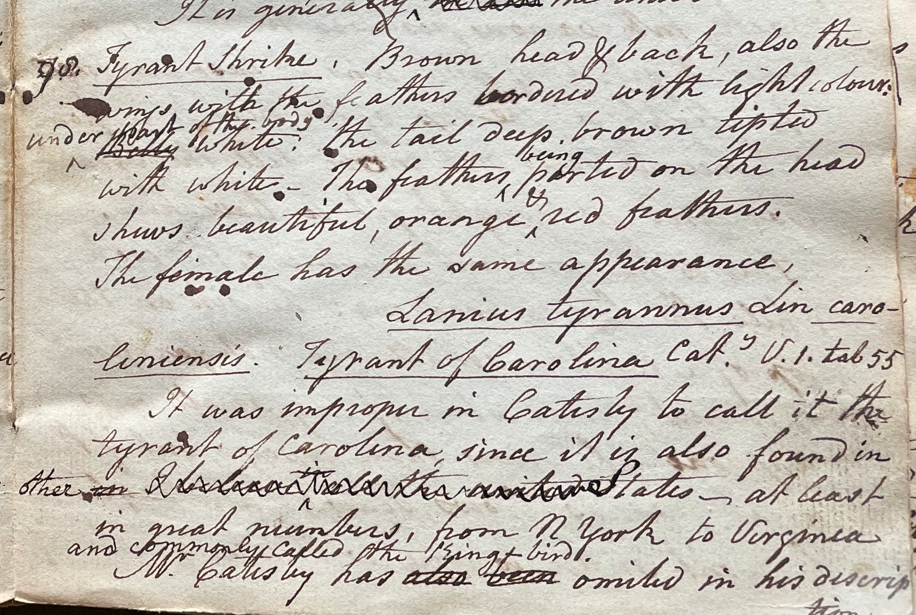 It is generally
98. Tyrant Shrike. Brown head & back, also the
wings with the feathers bordered with light colour:
under part of the body
Belly white. the tail deep brown tipted
being
with white. The feathers parted on the head
&
shews beautiful, orange red feathers.
The female has the same appearance,
Lanius tyrannus Lin caro-
liniensis. Tyrant of Carolina Cat.y V. 1. tab 55
It was improper in Catisby to call it the
tyrant of Carolina, since it is also found in
other in States - at least
in great numbers, from N York to Virginea
and commonly called the King bird.
Mr Catisby has also been omited in his descrip
tion